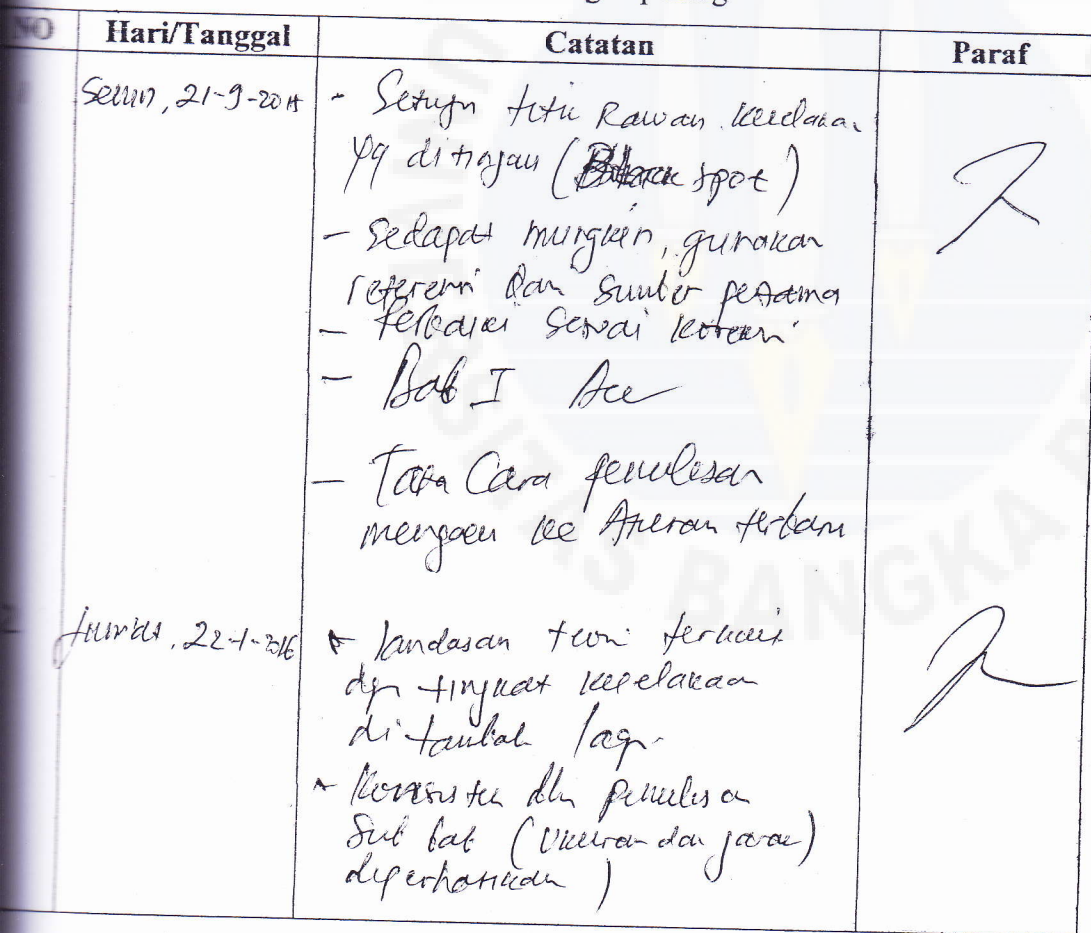 NO Hari/Tanggal Catatan Paraf
Senin, 21-9-2015 - Setuju titik Rawan kecelakaan
yg ditinjau (Black spot)
- Sedapat mungkin, gunakan
referensi dan sumber pertama
- Perbaiki sesuai koreksi
- Bab I Acc
- Tata Cara penulisan
mengacu ke Aturan terbaru
2 Jum'at, 22-1-2016 * landasan teori terkait
dgn tingkat kecelakaan
ditambah lagi.
* Konsisten dlm penulisan
Sub bab (Ukuran dan jarak)
diperhatikan)
UNIVERSITAS BANGKA B